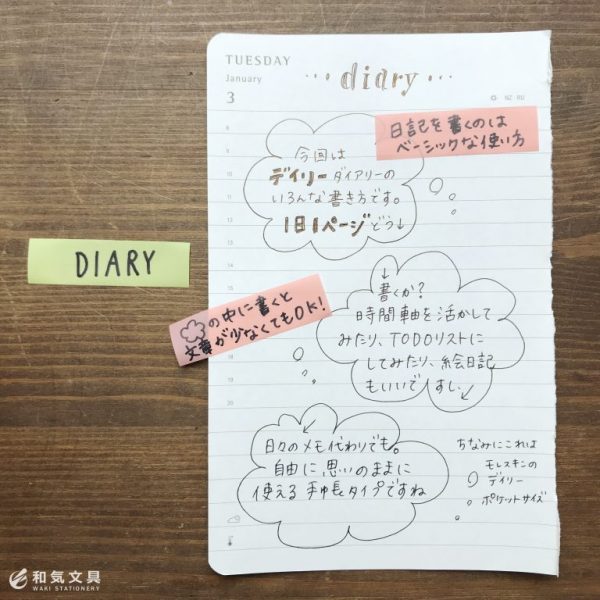 TUESDAY
January
3
··· diary ···
NZ RU
日記を書くのは
ベーシックな使い方
8
9
10
11
12
13
14
15
16
17
18
19
20
今回は
デイリーダイアリーの
いろんな書き方です。
1日1ページどう↓
DIARY
の中に書くと
文章が少なくてもOK!
↓
書くか?
時間軸を活かして
みたり、TODOリストに
してみたり、絵日記
もいいですし、↙
日々のメモ代わりでも。
自由に思いのままに
使える手帳タイプですね
ちなみにこれは
モレスキンの
デイリー
ポケットサイズ
和気文具
WAKI STATIONERY